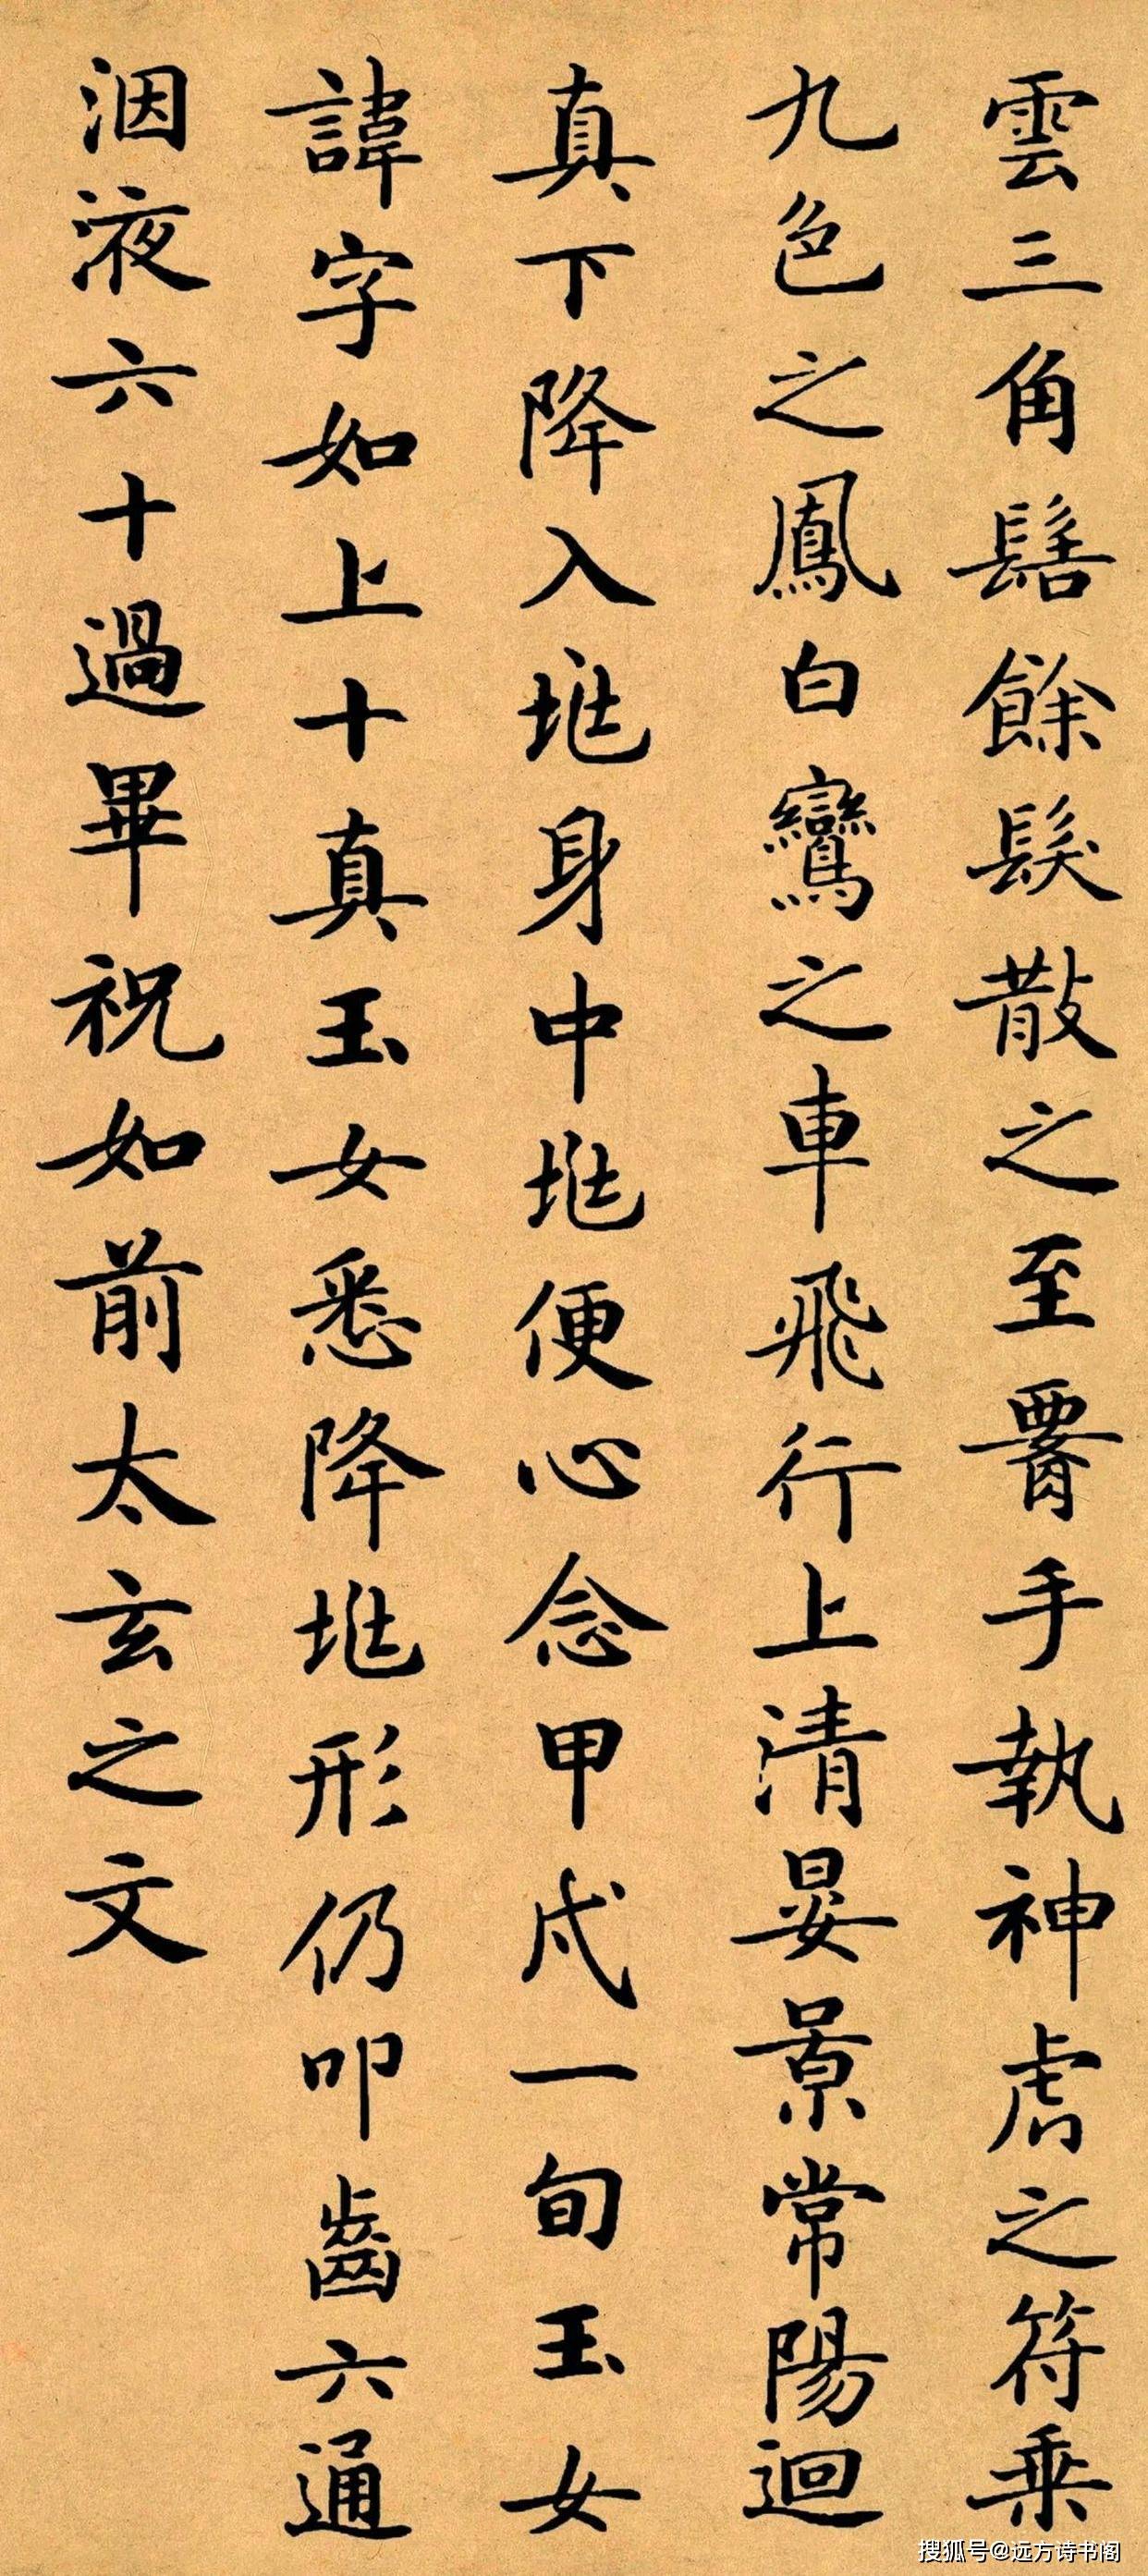 雲三角髻餘髮散之至䨱手執神虎之符乗
九色之鳳白鸞之車飛行上清晏景常陽迴
真下降入兆身中兆便心念甲戌一旬玉女
諱字如上十真玉女悉降兆形仍叩齒六通
洇液六十過畢祝如前太玄之文
搜狐号@远方诗书阁